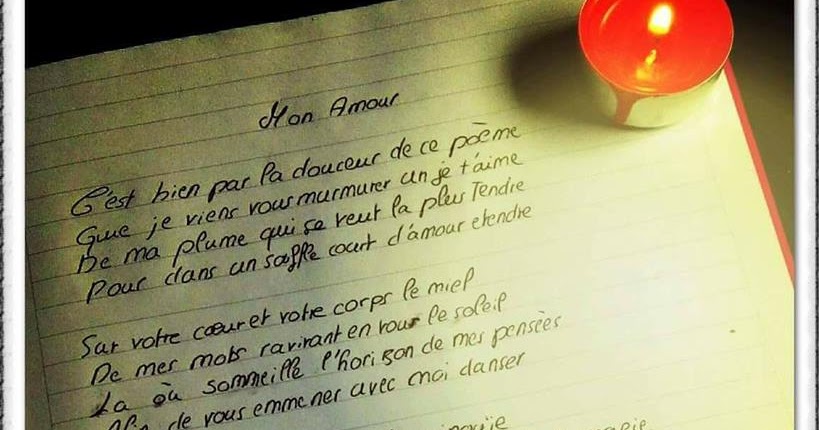 Mon Amour
C'est bien par la douceur de ce poème
Que je viens vous murmurer un je t'aime
De ma plume qui se veut la plus Tendre
Pour dans un souffle court d'amour etendre
Sur votre cœur et votre corps le miel
De mes mots ravivant en vous le soleil
La où sommeille l'horizon de mes pensées
de vous emmener avec moi danser